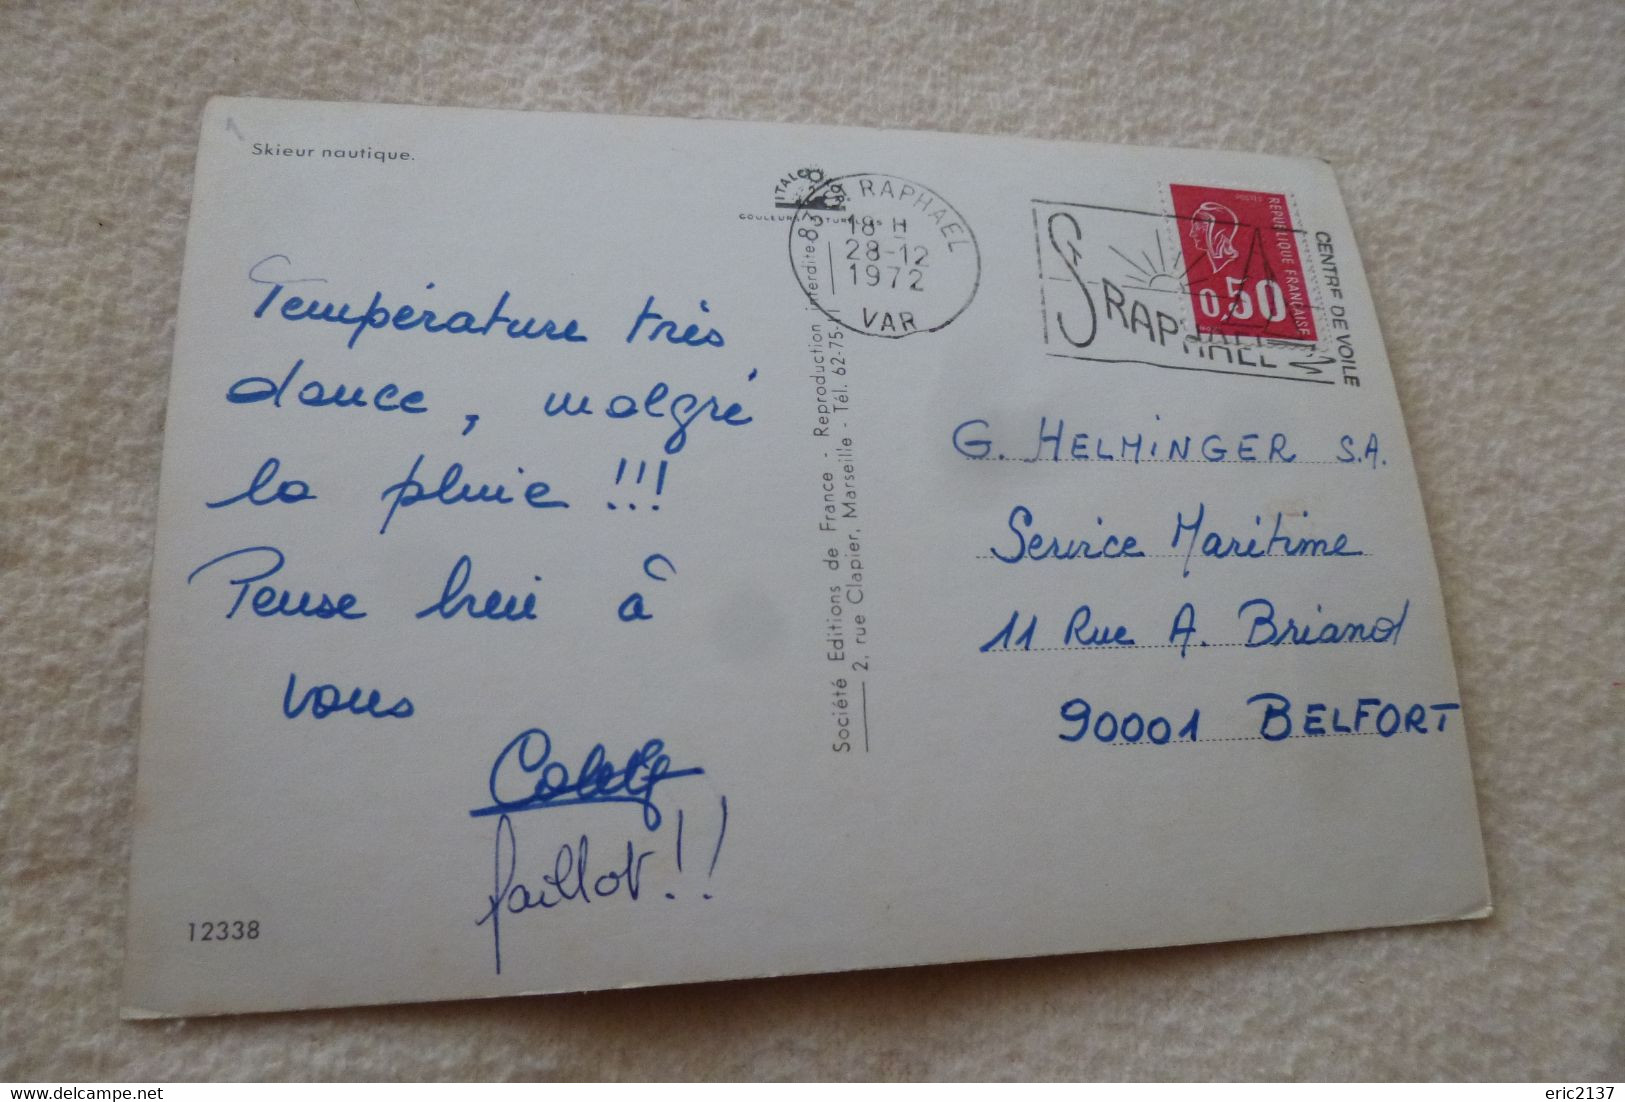 Skieur nautique.
Température très
douce, malgré
la pluie !!!
Pense bien à
vous
Colette
faillot!!
12338
Société Editions de France - Reproduction interdite
2, rue Clapier, Marseille - Tél. 62-75-11
RAPHAEL
18 H
28-12
1972
VAR
St RAPHAEL
CENTRE DE VOILE
REPUBLIQUE FRANÇAISE
0,50
G. HELMINGER S.A.
Service Maritime
11 Rue A. Briand
90001 BELFORT
eric2137